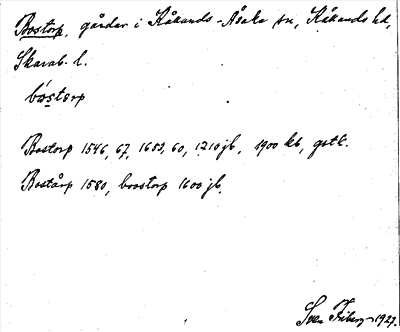 Bostorp, gårdar i Kåkinds-Åsaka sn, Kåkinds hd,
Skarab. l.
bòstørp
Bostorp 1546, 67, 1653, 60, 1710 jb, 1900 kb, gstk.
Bostårp 1580, boostorp 1600 jb.
Sven Friberg 1927.